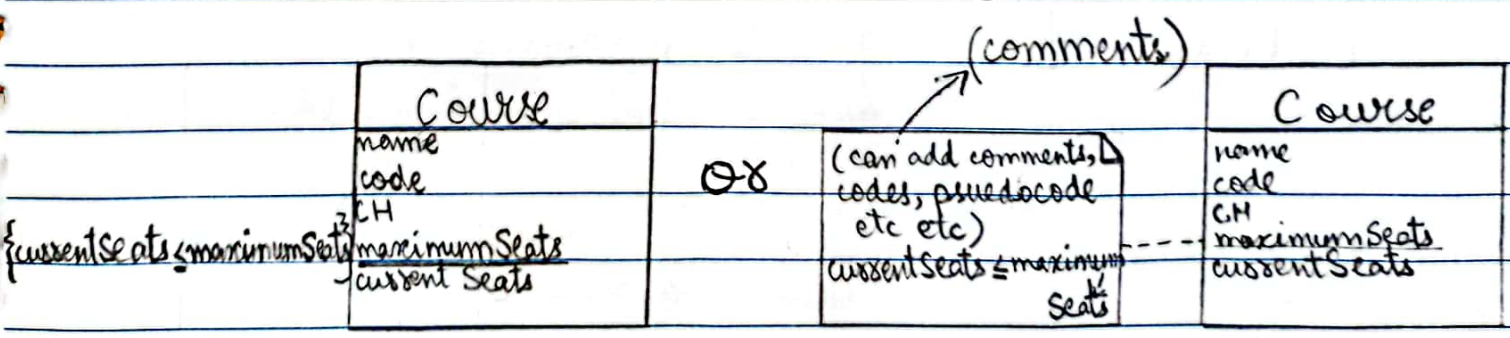 (comments)
Course
name
code
CH
{currentSeats ≤ maximumSeats}
maximumSeats
current Seats
Or
(can add comments,
codes, psuedocode
etc etc)
currentSeats ≤ maximum
Seats
Course
name
code
CH
maximumSeats
currentSeats